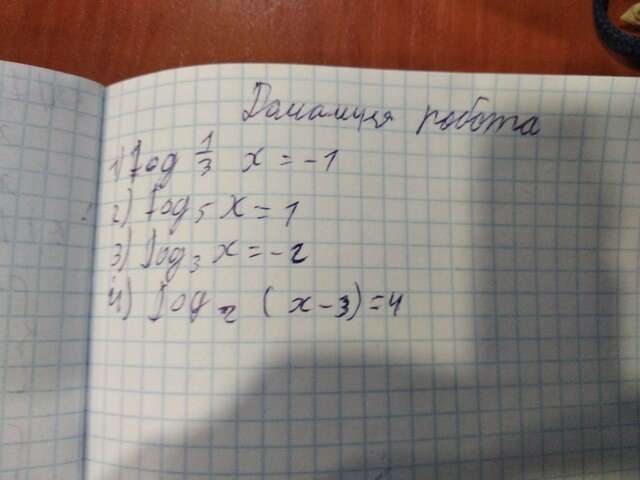 Домашня робота
1) log 1/3 x = -1
2) log5 x = 1
3) log3 x = -2
4) log2 (x-3)=4